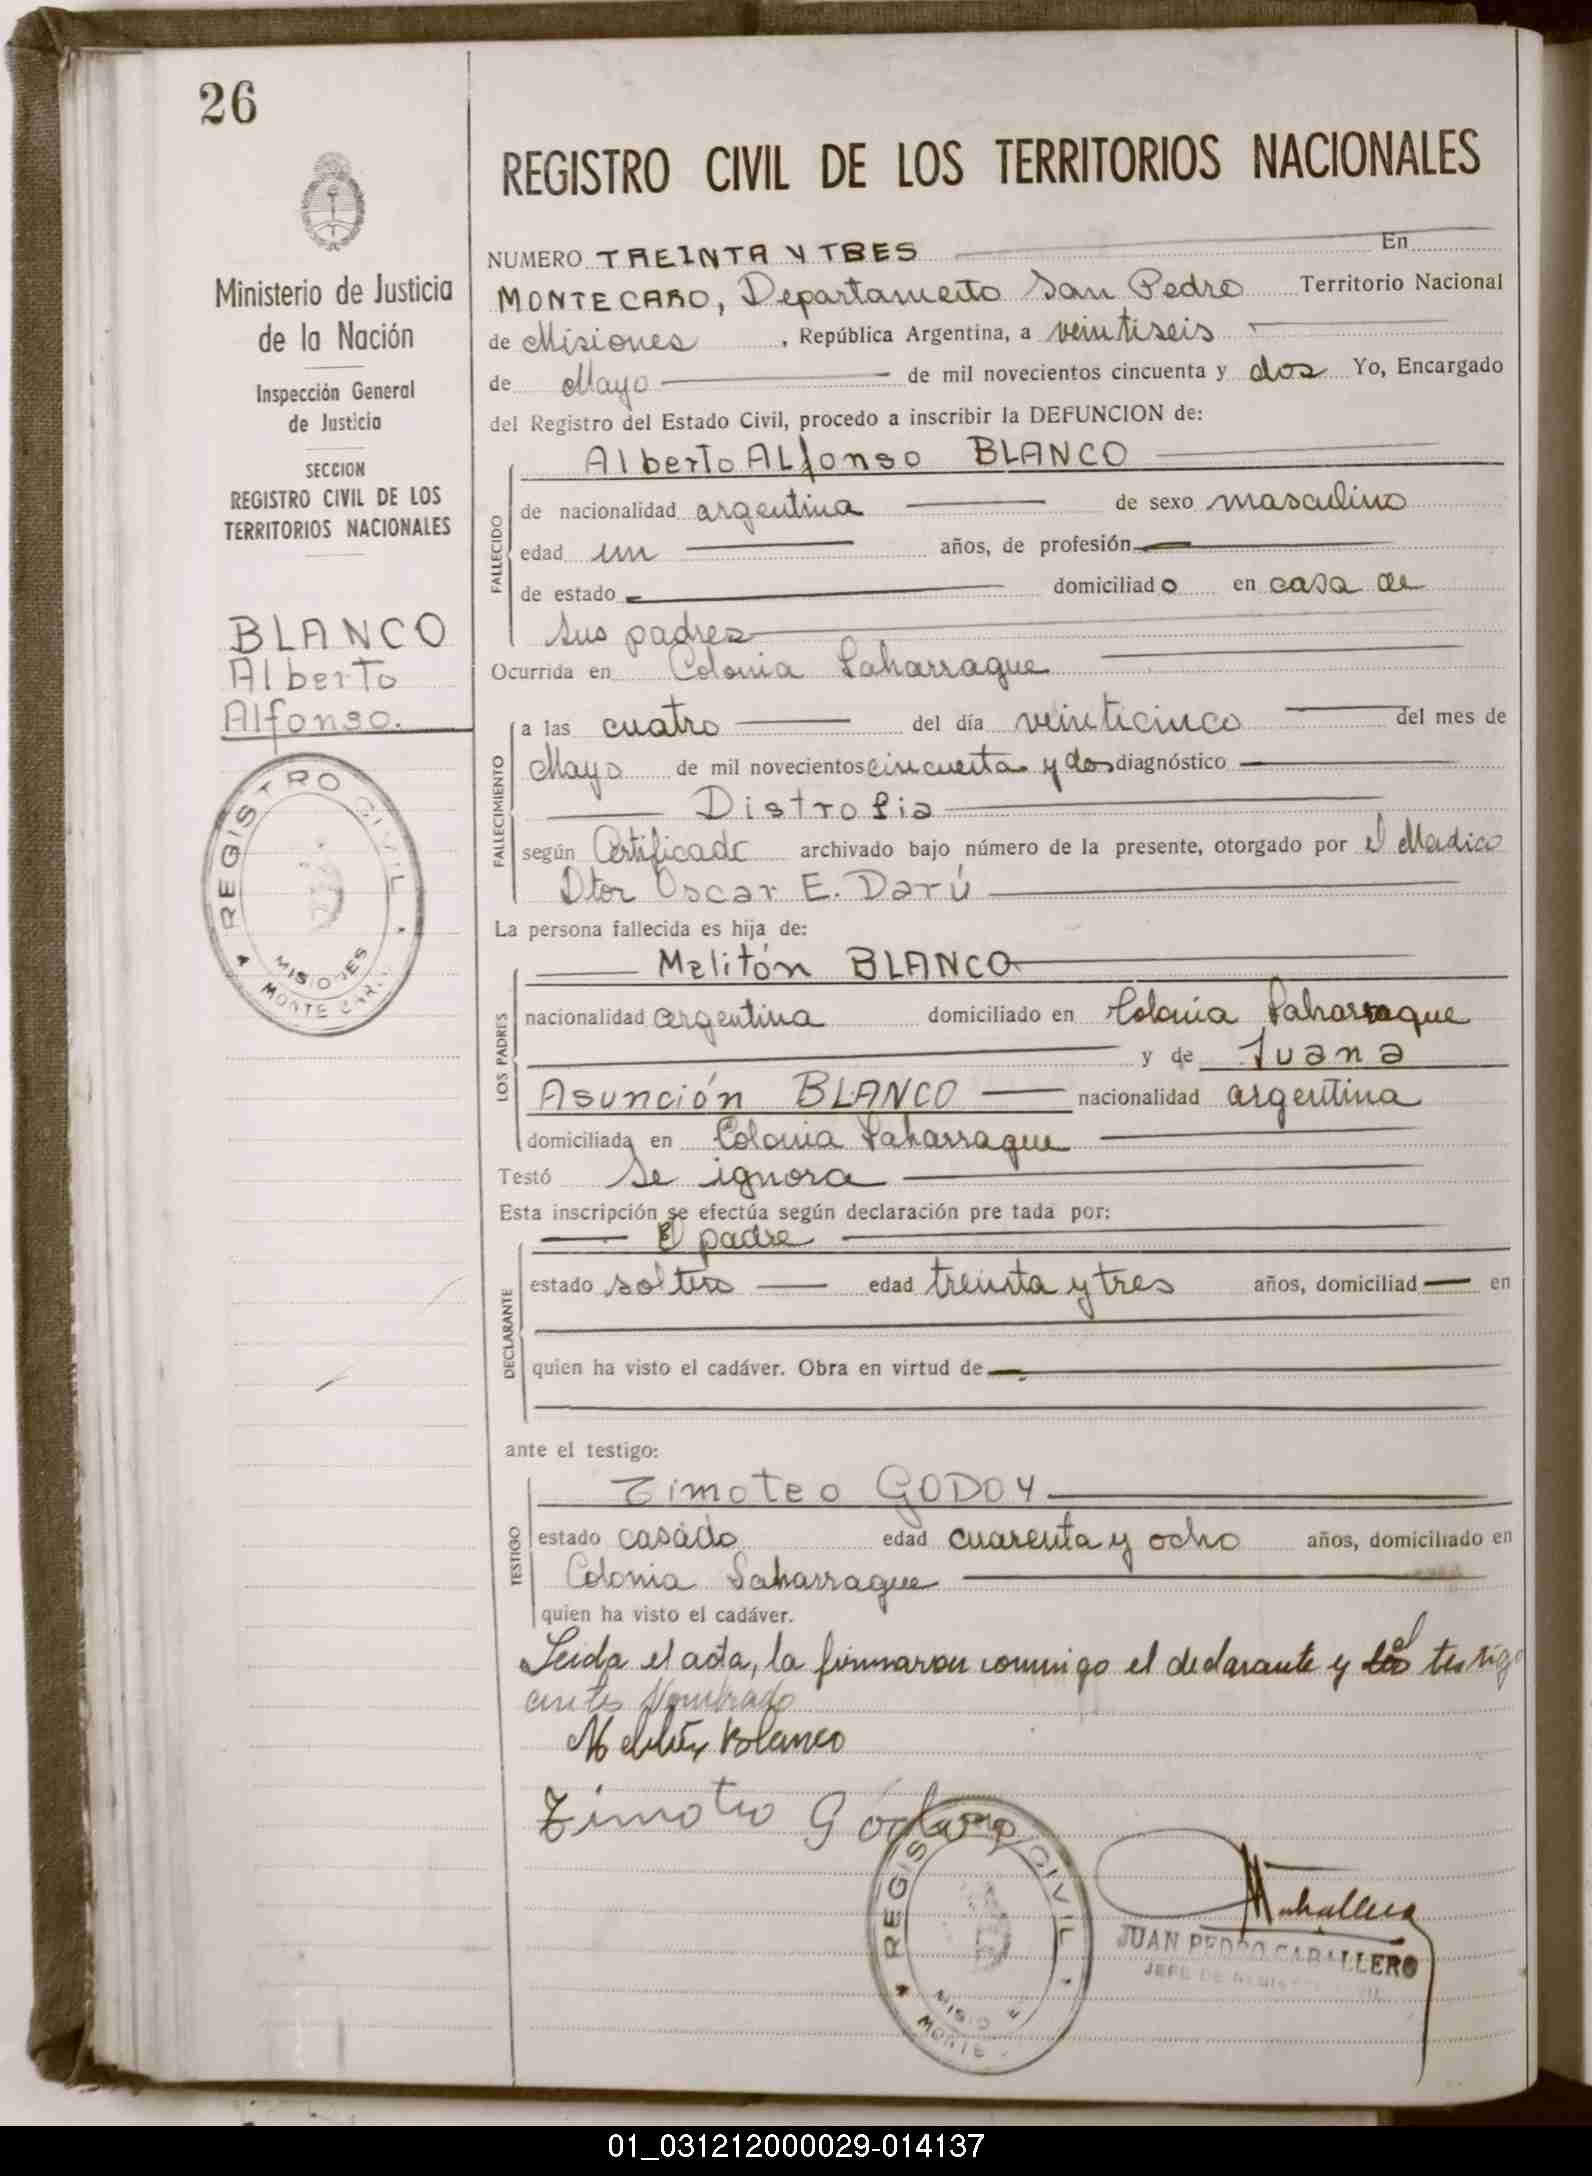 26
Ministerio de Justicia
de la Nación
Inspección General
de Justicia
SECCION
REGISTRO CIVIL DE LOS
TERRITORIOS NACIONALES
BLANCO
Alberto
Alfonso.
REGISTRO CIVIL
MISIONES
MONTE CARLO
REGISTRO CIVIL DE LOS TERRITORIOS NACIONALES
NUMERO TREINTA Y TRES En
MONTECARLO, Departamento San Pedro Territorio Nacional
de Misiones, República Argentina, a veintiseis
de Mayo de mil novecientos cincuenta y dos Yo, Encargado
del Registro del Estado Civil, procedo a inscribir la DEFUNCION de:
Alberto Alfonso BLANCO
FALLECIDO
de nacionalidad argentina de sexo masculino
edad un años, de profesión
de estado domiciliado en casa de
sus padres
Ocurrida en Colonia Laharrague
FALLECIMIENTO
a las cuatro del día veinticinco del mes de
Mayo de mil novecientos cincuenta y dos diagnóstico
Distrofia
según Certificado archivado bajo número de la presente, otorgado por el Medico
Dtor Oscar E. Darú
La persona fallecida es hija de:
LOS PADRES
Melitón BLANCO
nacionalidad argentina domiciliado en Colonia Laharrague
y de Juana
Asunción BLANCO nacionalidad argentina
domiciliada en Colonia Laharrague
Testó se ignora
Esta inscripción se efectúa según declaración pre tada por:
El padre
DECLARANTE
estado soltero edad treinta y tres años, domiciliad en
quien ha visto el cadáver. Obra en virtud de
ante el testigo:
TESTIGO
Timoteo GODOY
estado casado edad cuarenta y ocho años, domiciliado en
Colonia Laharrague
quien ha visto el cadáver.
Leida el acta, la firmaron conmigo el declarante y el testigo
antes Nombrado
Melitón Blanco
Timoteo Godoy
REGISTRO CIVIL
MONTE
JUAN PEDRO CABALLERO
JEFE DE
01_031212000029-014137